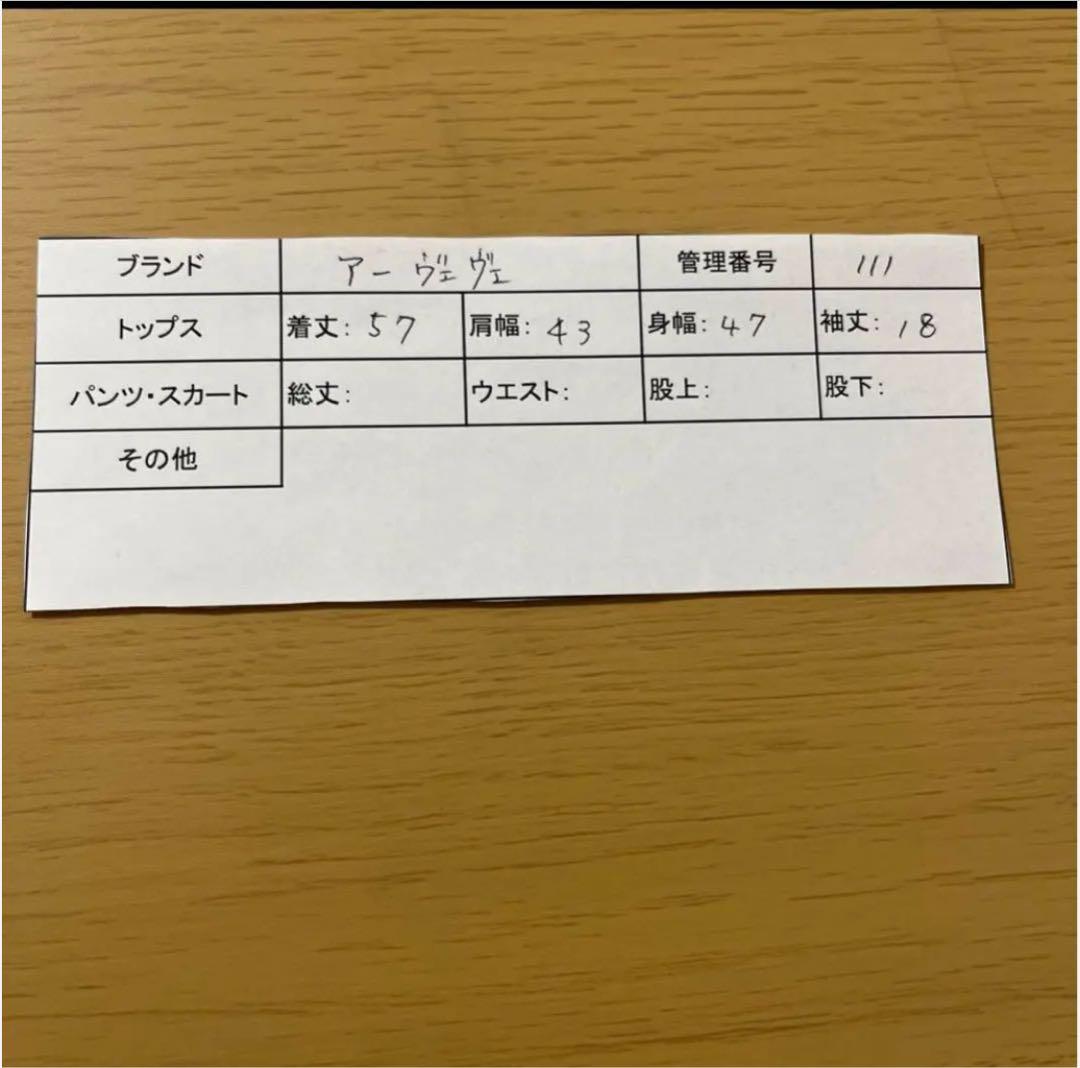 ブランド アーヴェヴェ 管理番号 111
トップス 着丈: 57 肩幅: 43 身幅: 47 袖丈: 18
パンツ・スカート 総丈: ウエスト: 股上: 股下:
その他